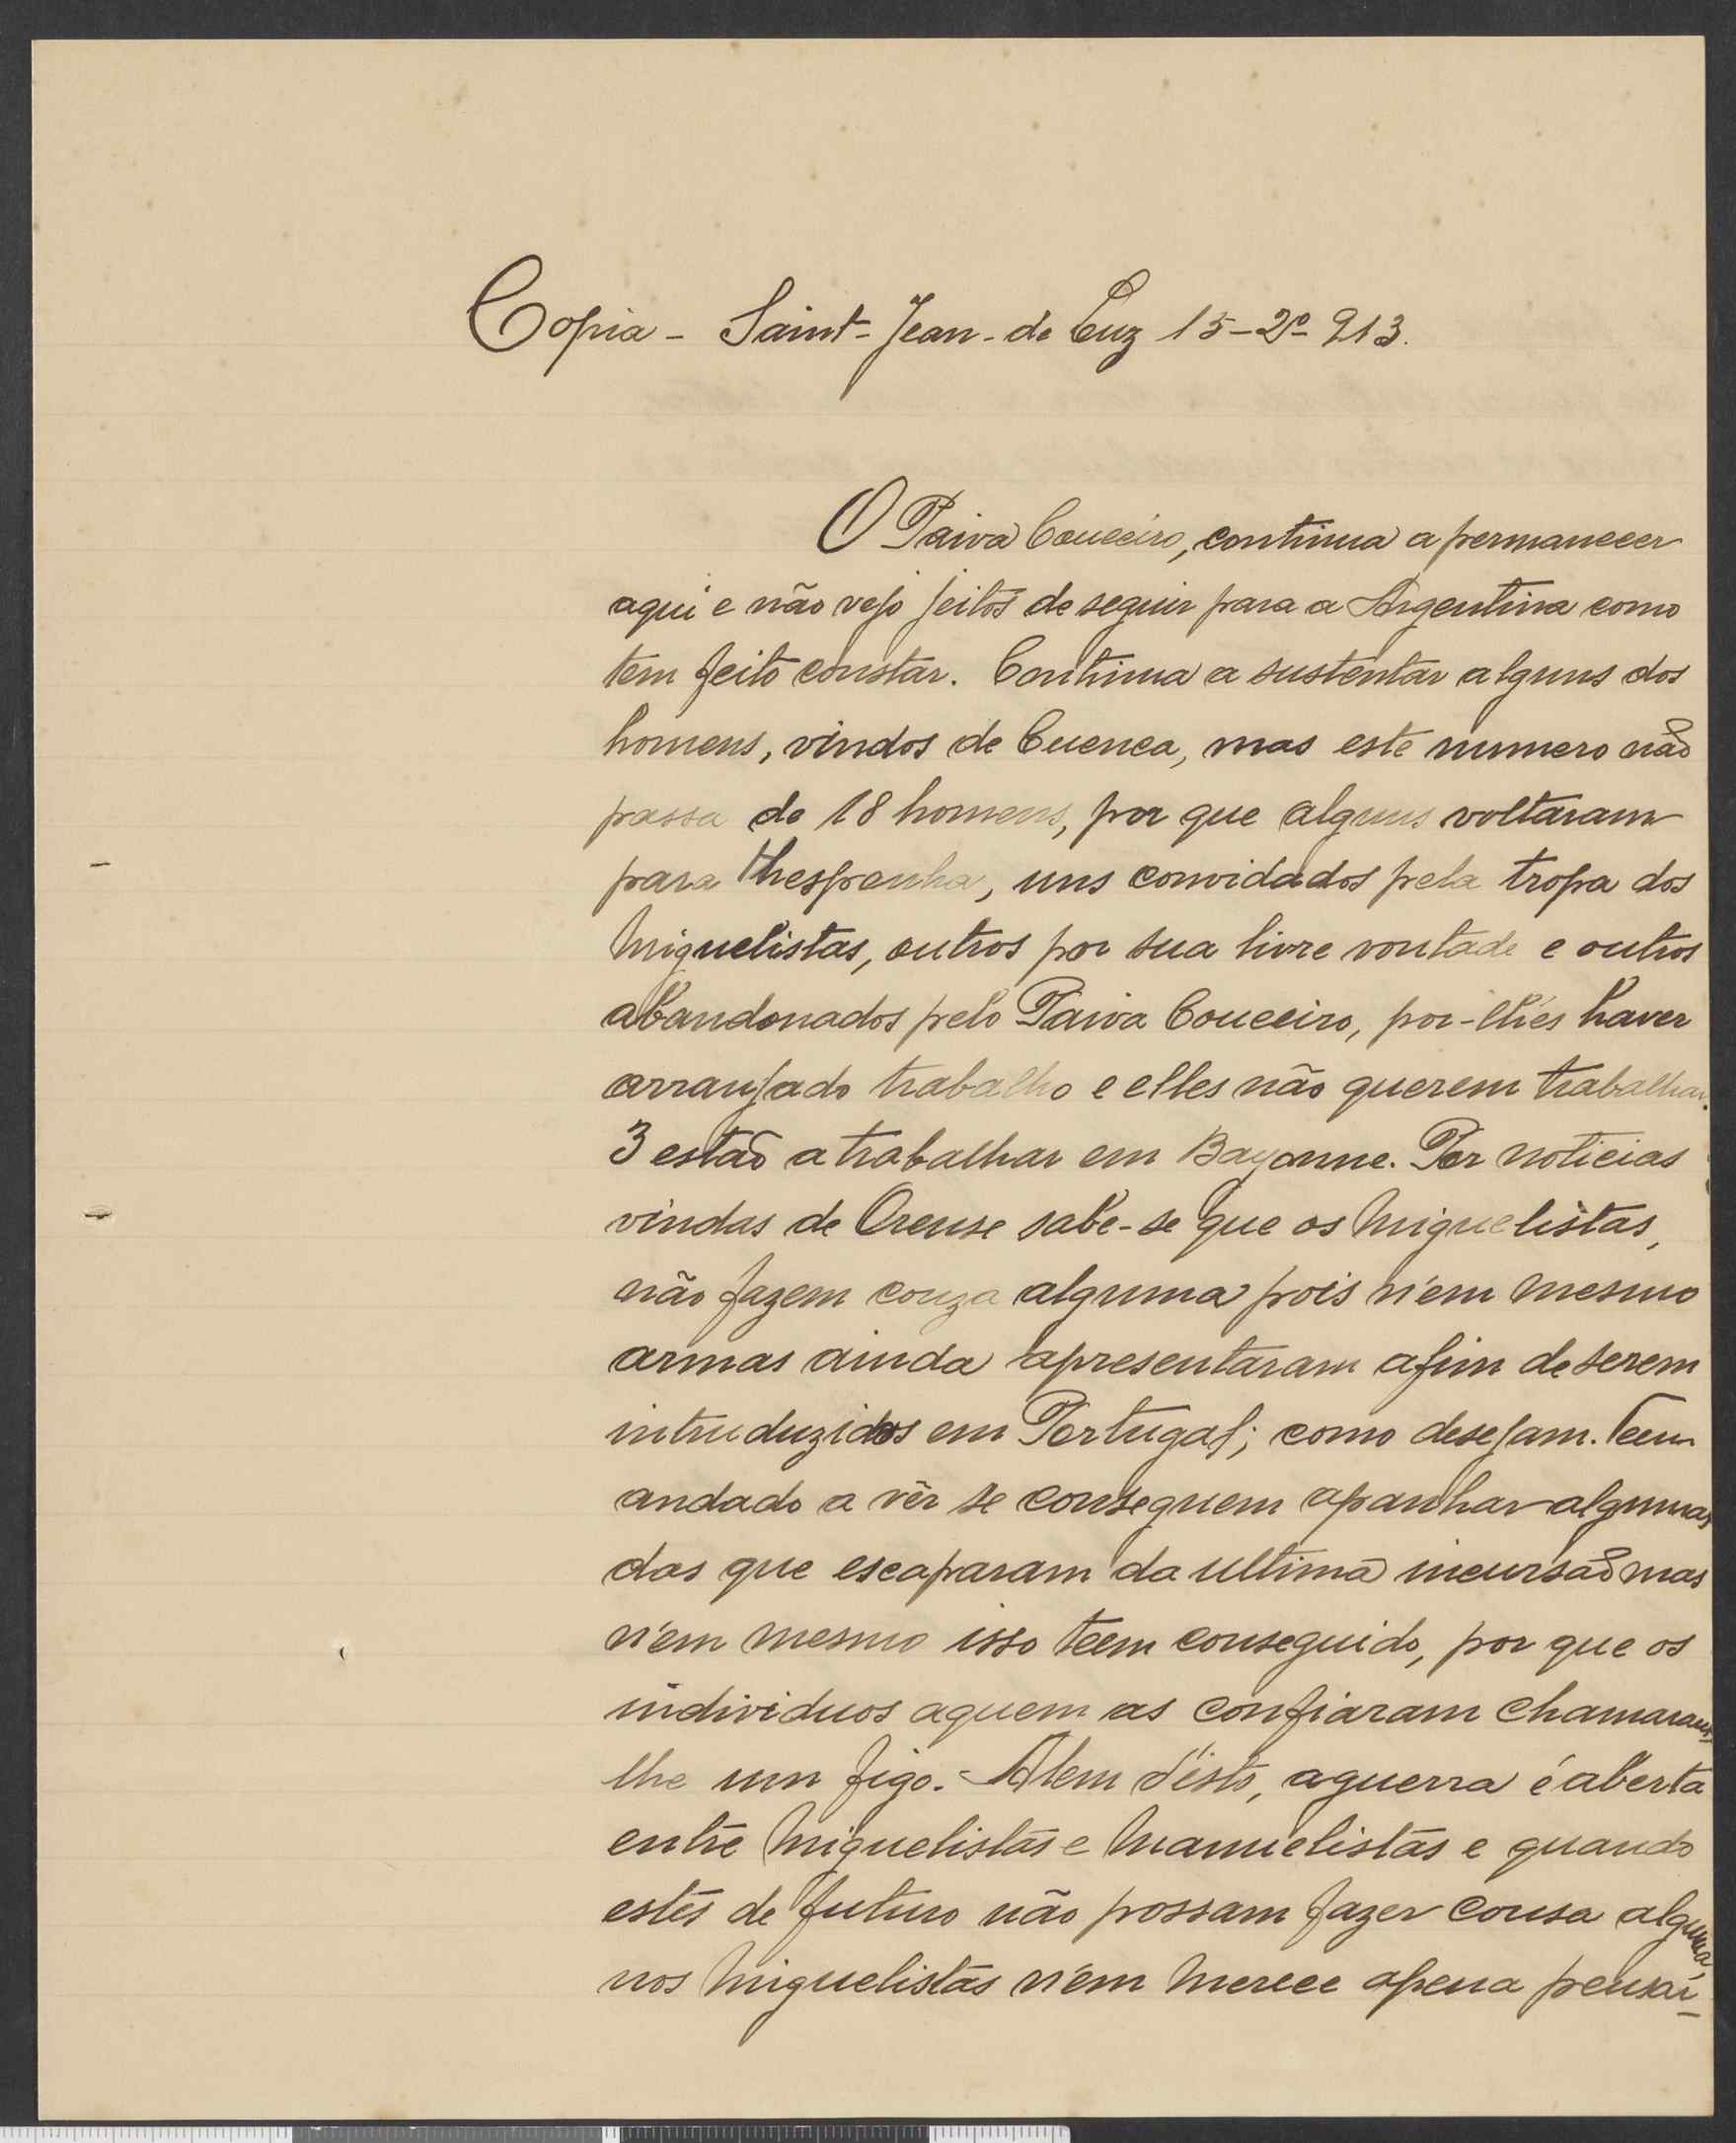 Copia - Saint-Jean-de Luz 15-2º-913.
O Paiva Couceiro, continua a permanecer
aqui e não vejo jeitos de seguir para a Argentina como
tem feito constar. Continua a sustentar alguns dos
homens, vindos de Cuenca, mas este numero não
passa de 18 homens, por que alguns voltaram
para Hespanha, uns convidados pela tropa dos
Miguelistas, outros por sua livre vontade e outros
abandonados pelo Paiva Couceiro, por-lhés haver
arranjado trabalho e elles não querem trabalhar.
3 estão a trabalhar em Bayonne. Por noticias
vindas de Orense sabe-se que os Miguelistas,
não fazem couza alguma pois n'em mesmo
armas ainda apresentaram afim de serem
intruduzidos em Portugal; como desejam. Teem
andado a vêr se conseguem apanhar algumas
das que escaparam da ultima incursão mas
n'em mesmo isso teem conseguido, por que os
individuos aquem as confiaram chamaram-
lhe um figo. - Alem d'ésto, aguerra é aberta
entre Miguelistas e Manuelistas e quando
estes de futuro não possam fazer cousa alguma,
nos Miguelistas n'em merece apena pensar-